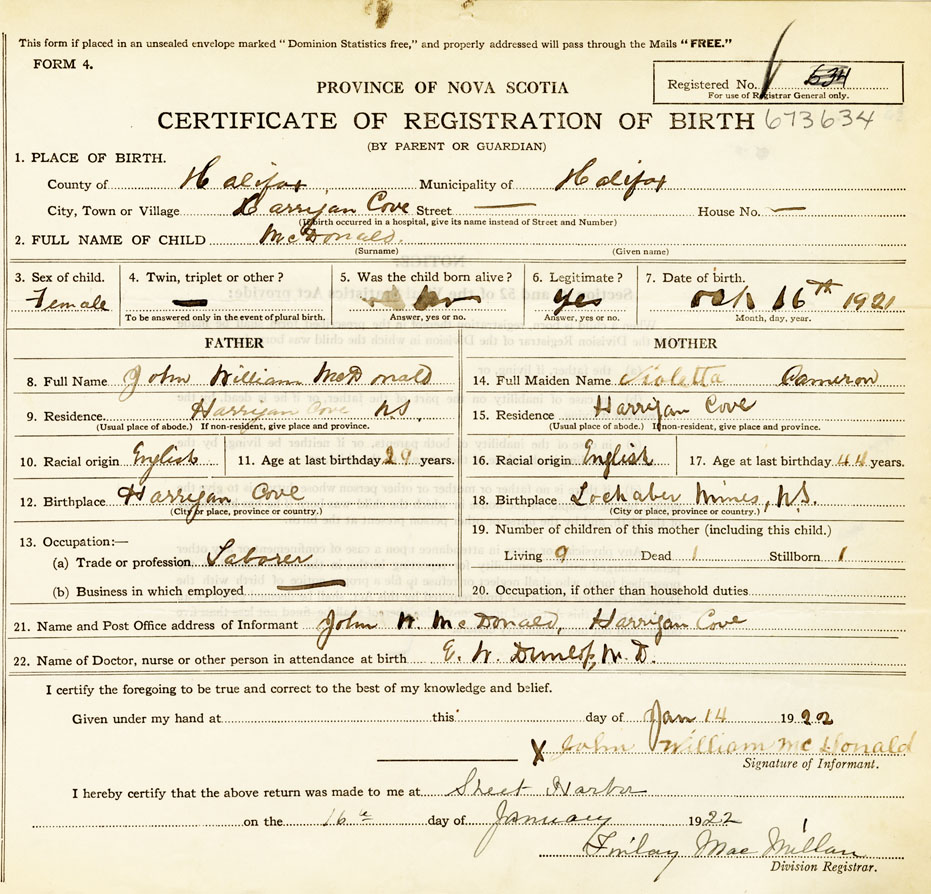 This form if placed in an unsealed envelope marked "Dominion Statistics free," and properly addressed will pass through the Mails "FREE."
FORM 4.
PROVINCE OF NOVA SCOTIA
Registered No. 634
For use of Registrar General only.
CERTIFICATE OF REGISTRATION OF BIRTH 673634
(BY PARENT OR GUARDIAN)
1. PLACE OF BIRTH.
County of Halifax Municipality of Halifax
City, Town or Village Harrigan Cove Street — House No. —
(If birth occurred in a hospital, give its name instead of Street and Number)
2. FULL NAME OF CHILD McDonald.
(Surname) (Given name)
3. Sex of child. 4. Twin, triplet or other? 5. Was the child born alive? 6. Legitimate? 7. Date of birth.
Female — yes Oct 16th 1921
To be answered only in the event of plural birth. Answer, yes or no. Answer, yes or no. Month, day, year.
FATHER MOTHER
8. Full Name John William McDonald 14. Full Maiden Name Violetta Cameron
9. Residence Harrigan Cove N.S. 15. Residence Harrigan Cove
(Usual place of abode.) If non-resident, give place and province. (Usual place of abode.) If non-resident, give place and province.
10. Racial origin English 11. Age at last birthday 29 years. 16. Racial origin English 17. Age at last birthday 44 years.
12. Birthplace Harrigan Cove 18. Birthplace Lochaber Mines, N.S.
(City or place, province or country.) (City or place, province or country.)
13. Occupation:— 19. Number of children of this mother (including this child.)
(a) Trade or profession Laborer Living 9 Dead 1 Stillborn 1
(b) Business in which employed — 20. Occupation, if other than household duties
21. Name and Post Office address of Informant John W. McDonald, Harrigan Cove
22. Name of Doctor, nurse or other person in attendance at birth E. W. Dunlop, M.D.
I certify the foregoing to be true and correct to the best of my knowledge and belief.
Given under my hand at this day of Jan 14 1922
X John William McDonald
Signature of Informant.
I hereby certify that the above return was made to me at Sheet Harbor
on the 16th day of January 1922
Finlay MacMillan
Division Registrar.